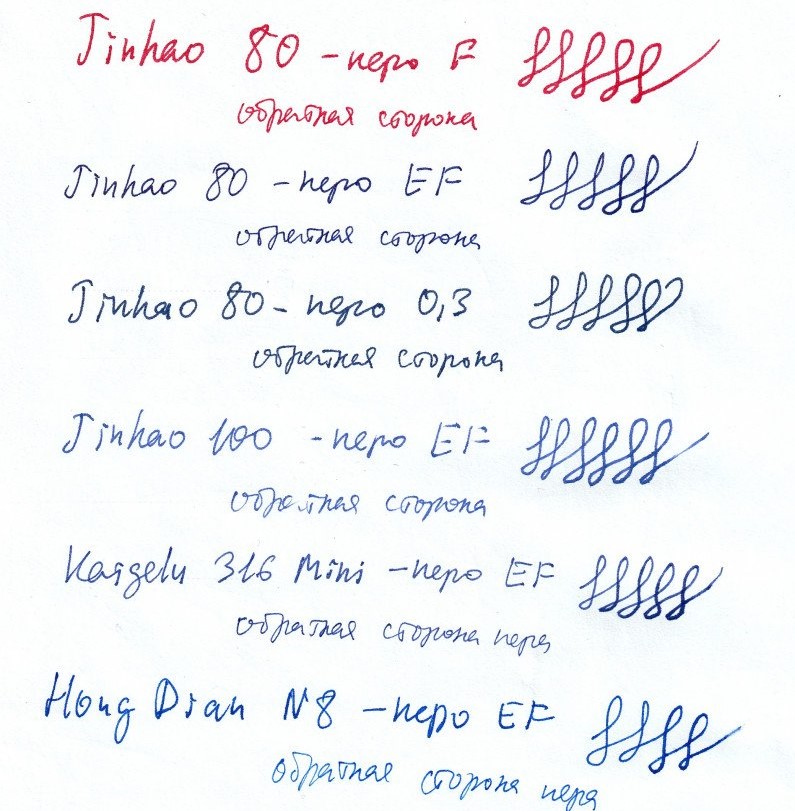 Jinhao 80 - перо F
обратная сторона
Jinhao 80 - перо EF
обратная сторона
Jinhao 80 - перо 0,3
обратная сторона
Jinhao 100 - перо EF
обратная сторона
Kaigelu 316 Mini - перо EF
обратная сторона пера
Hong Dian N8 - перо EF
обратная сторона пера